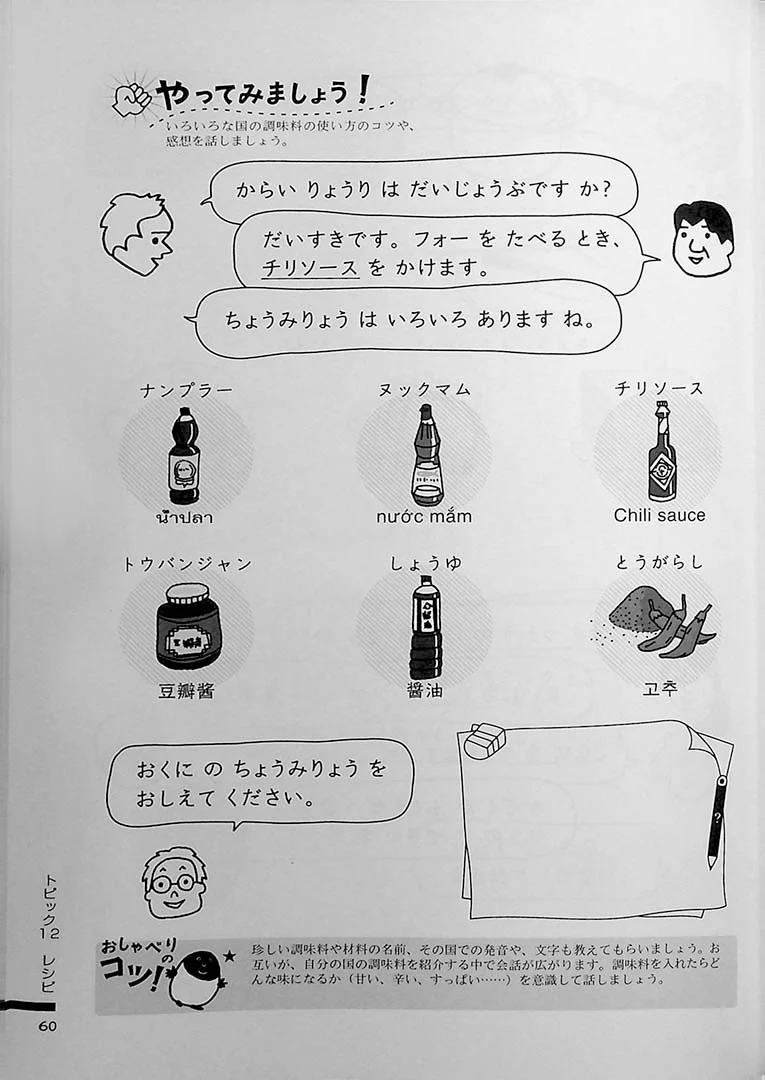 やってみましょう！
いろいろな国の調味料の使い方のコツや、
感想を話しましょう。
からい りょうり は だいじょうぶです か？
だいすきです。フォー を たべる とき、
チリソース を かけます。
ちょうみりょう は いろいろ あります ね。
ナンプラー
ヌックマム
チリソース
น้ำปลา
nước mắm
Chili sauce
トウバンジャン
しょうゆ
とうがらし
豆瓣酱
醤油
고추
おくに の ちょうみりょう を
おしえて ください。
?
おしゃべりの
コツ！
珍しい調味料や材料の名前、その国での発音や、文字も教えてもらいましょう。お
互いが、自分の国の調味料を紹介する中で会話が広がります。調味料を入れたらど
んな味になるか（甘い、辛い、すっぱい……）を意識して話しましょう。
トピック12 レシピ
60